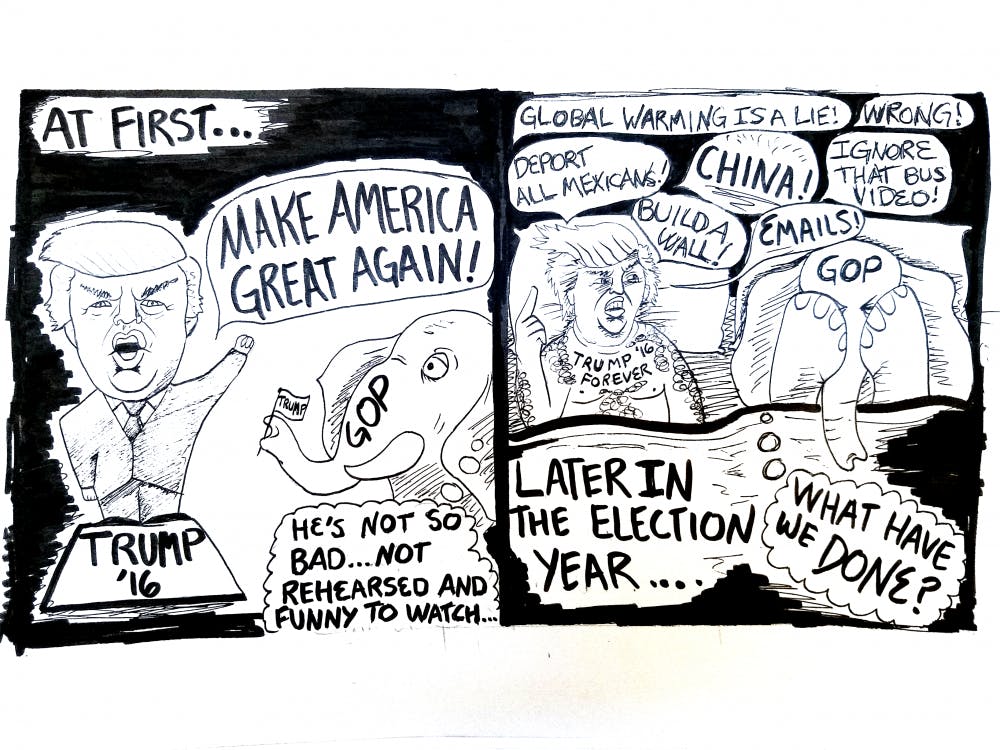 AT FIRST...
MAKE AMERICA
GREAT AGAIN!
TRUMP
GOP
TRUMP
'16
HE'S NOT SO
BAD...NOT
REHEARSED AND
FUNNY TO WATCH...
GLOBAL WARMING IS A LIE!
WRONG!
DEPORT
ALL MEXICANS!
CHINA!
IGNORE
THAT BUS
VIDEO!
BUILD A
WALL!
EMAILS!
GOP
TRUMP '16
FOREVER
LATER IN
THE ELECTION
YEAR....
WHAT HAVE
WE DONE?